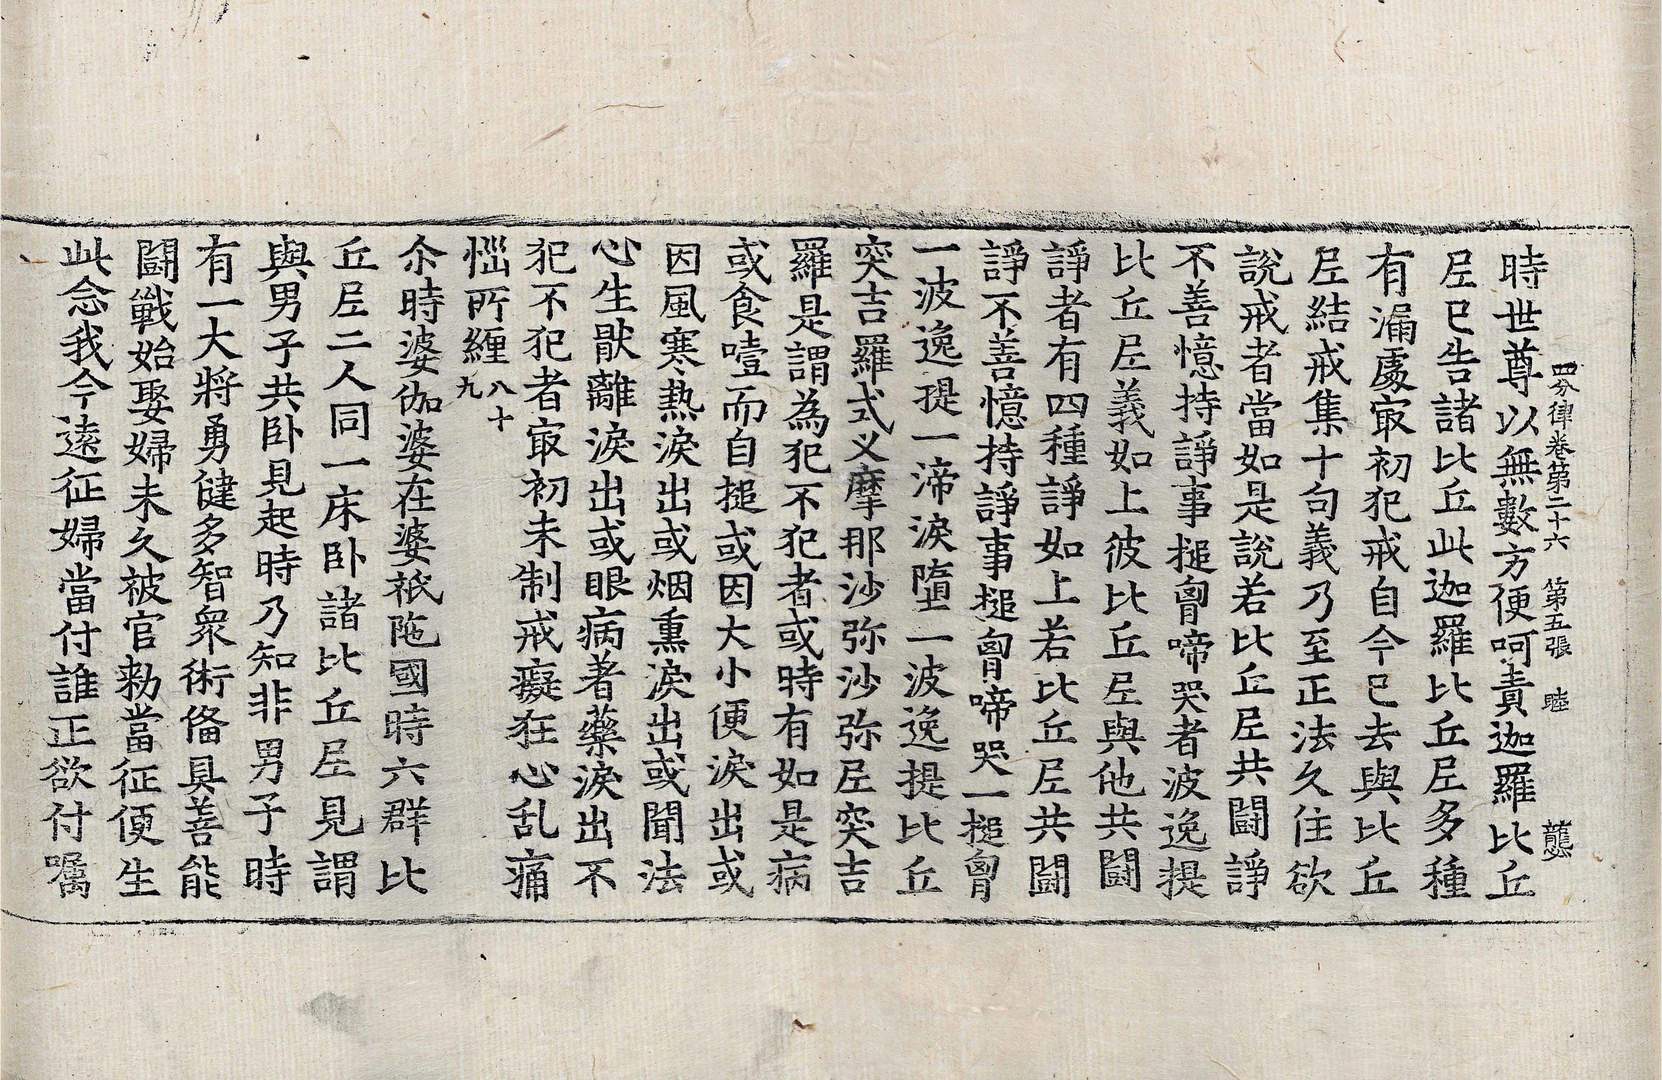 四分律卷第二十六 第五張 睦 龔
時世尊以無數方便呵責迦羅比丘
𡰱已告諸比丘此迦羅比丘𡰱多種
有漏處㝡初犯戒自今已去與比丘
𡰱結戒集十句義乃至正法久住欲
說戒者當如是說若比丘𡰱共闘諍
不善憶持諍事搥𦙄啼哭者波逸提
比丘𡰱義如上彼比丘𡰱與他共闘
諍者有四種諍如上若比丘𡰱共闘
諍不善憶持諍事搥𦙄啼哭一搥𦙄
一波逸提一渧淚墮一波逸提比丘
突吉羅式叉摩那沙弥沙弥𡰱突吉
羅是謂為犯不犯者或時有如是病
或食噎而自搥或因大小便淚出或
因風寒熱淚出或烟熏淚出或聞法
心生猒離淚出或眼病著藥淚出不
犯不犯者㝡初未制戒癡狂心乱痛
惱所纏八十九
尒時婆伽婆在婆祇陁國時六群比
丘𡰱二人同一床卧諸比丘𡰱見謂
與男子共卧見起時乃知非男子時
有一大將勇健多智衆術俻具善能
闘戰始娶婦未久被官勑當征便生
此念我今遠征婦當付誰正欲付囑